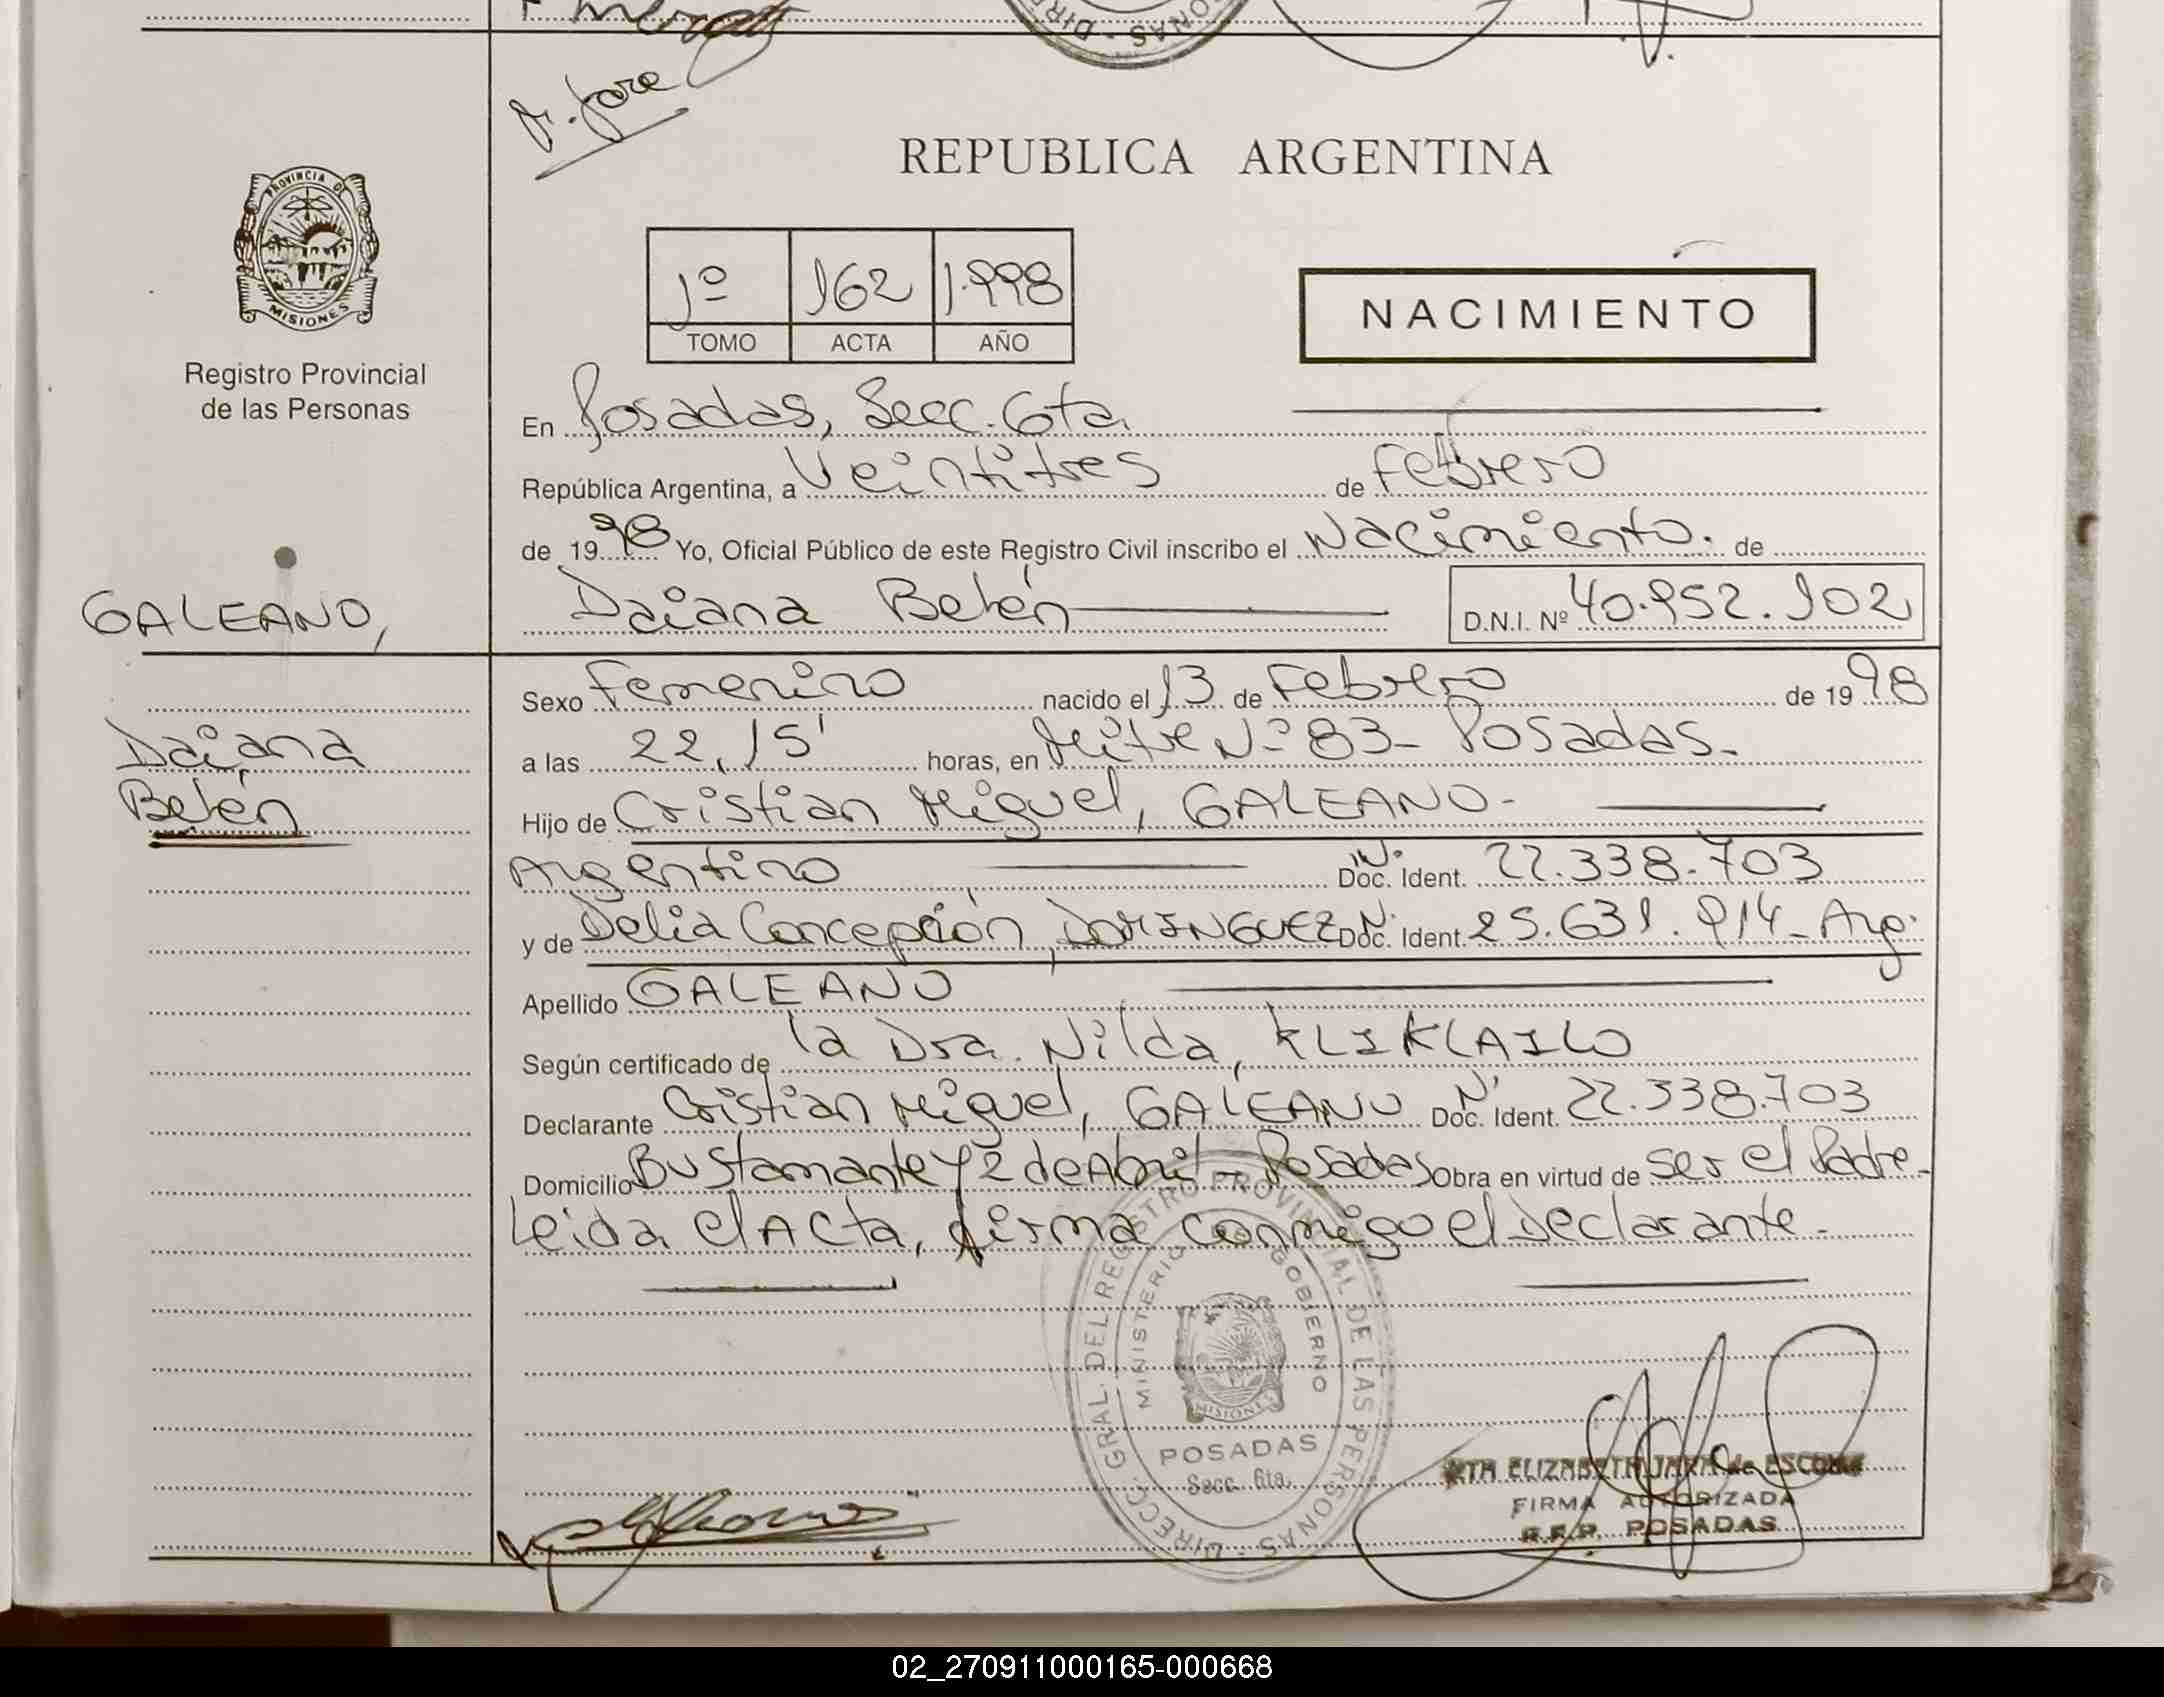 REPUBLICA ARGENTINA
PROVINCIA DE
MISIONES
Registro Provincial
de las Personas
1º 162 1.998
TOMO ACTA AÑO
NACIMIENTO
En Posadas, Secc. 6ta.
República Argentina, a Veintitres de Febrero
de 1998 Yo, Oficial Público de este Registro Civil inscribo el Nacimiento. de
Daiana Belén D.N.I. Nº 40.952.102
GALEANO,
Daiana
Belén
Sexo Femenino nacido el 13 de Febrero de 1998
a las 22,15' horas, en Mitre Nº 83 - Posadas.
Hijo de Cristian Miguel, GALEANO-
Argentino N. Doc. Ident. 22.338.703
y de Delia Concepción, DOMINGUEZ N. Doc. Ident. 25.631.914 - Arg.
Apellido GALEANO
Según certificado de la Dra. Nilda, KLIKLAILO
Declarante Cristian Miguel, GALEANO N. Doc. Ident. 22.338.703
Domicilio Bustamante y 2 de Abril - Posadas Obra en virtud de ser el Padre.
Leida el Acta, firma conmigo el Declarante.
DIRECC. GRAL. DEL REGISTRO PROVINCIAL DE LAS PERSONAS
MINISTERIO GOBIERNO
MISIONES
POSADAS
Secc. 6ta.
ELIZABETH JARA de
FIRMA AUTORIZADA
R.P.P. POSADAS
02_270911000165-000668